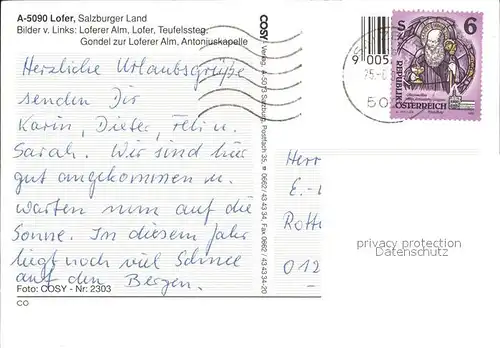 A-5090 Lofer, Salzburger Land
Bilder v. Links: Loferer Alm, Lofer, Teufelssteg,
Gondel zur Loferer Alm, Antonjuskapelle
Herzliche Urlaubsgrüße
senden Dir
Karin, Dieter, Feli u.
Sarah. Wir sind hier
gut angekommen u.
warten nun auf die
Sonne. In diesem Jahr
liegt noch viel Schnee
auf den Bergen.
Foto: COSY - Nr: 2303
CO
COSY - Verlag, A-5073 Salzburg, Postfach 35, ☎ 0662/43 43 34, Fax 0662/43 43 34-20
9 005
25-6
50
S 6
REPUBLIK
ÖSTERREICH
Herr
E.-
Rottw
012
privacy protection
Datenschutz